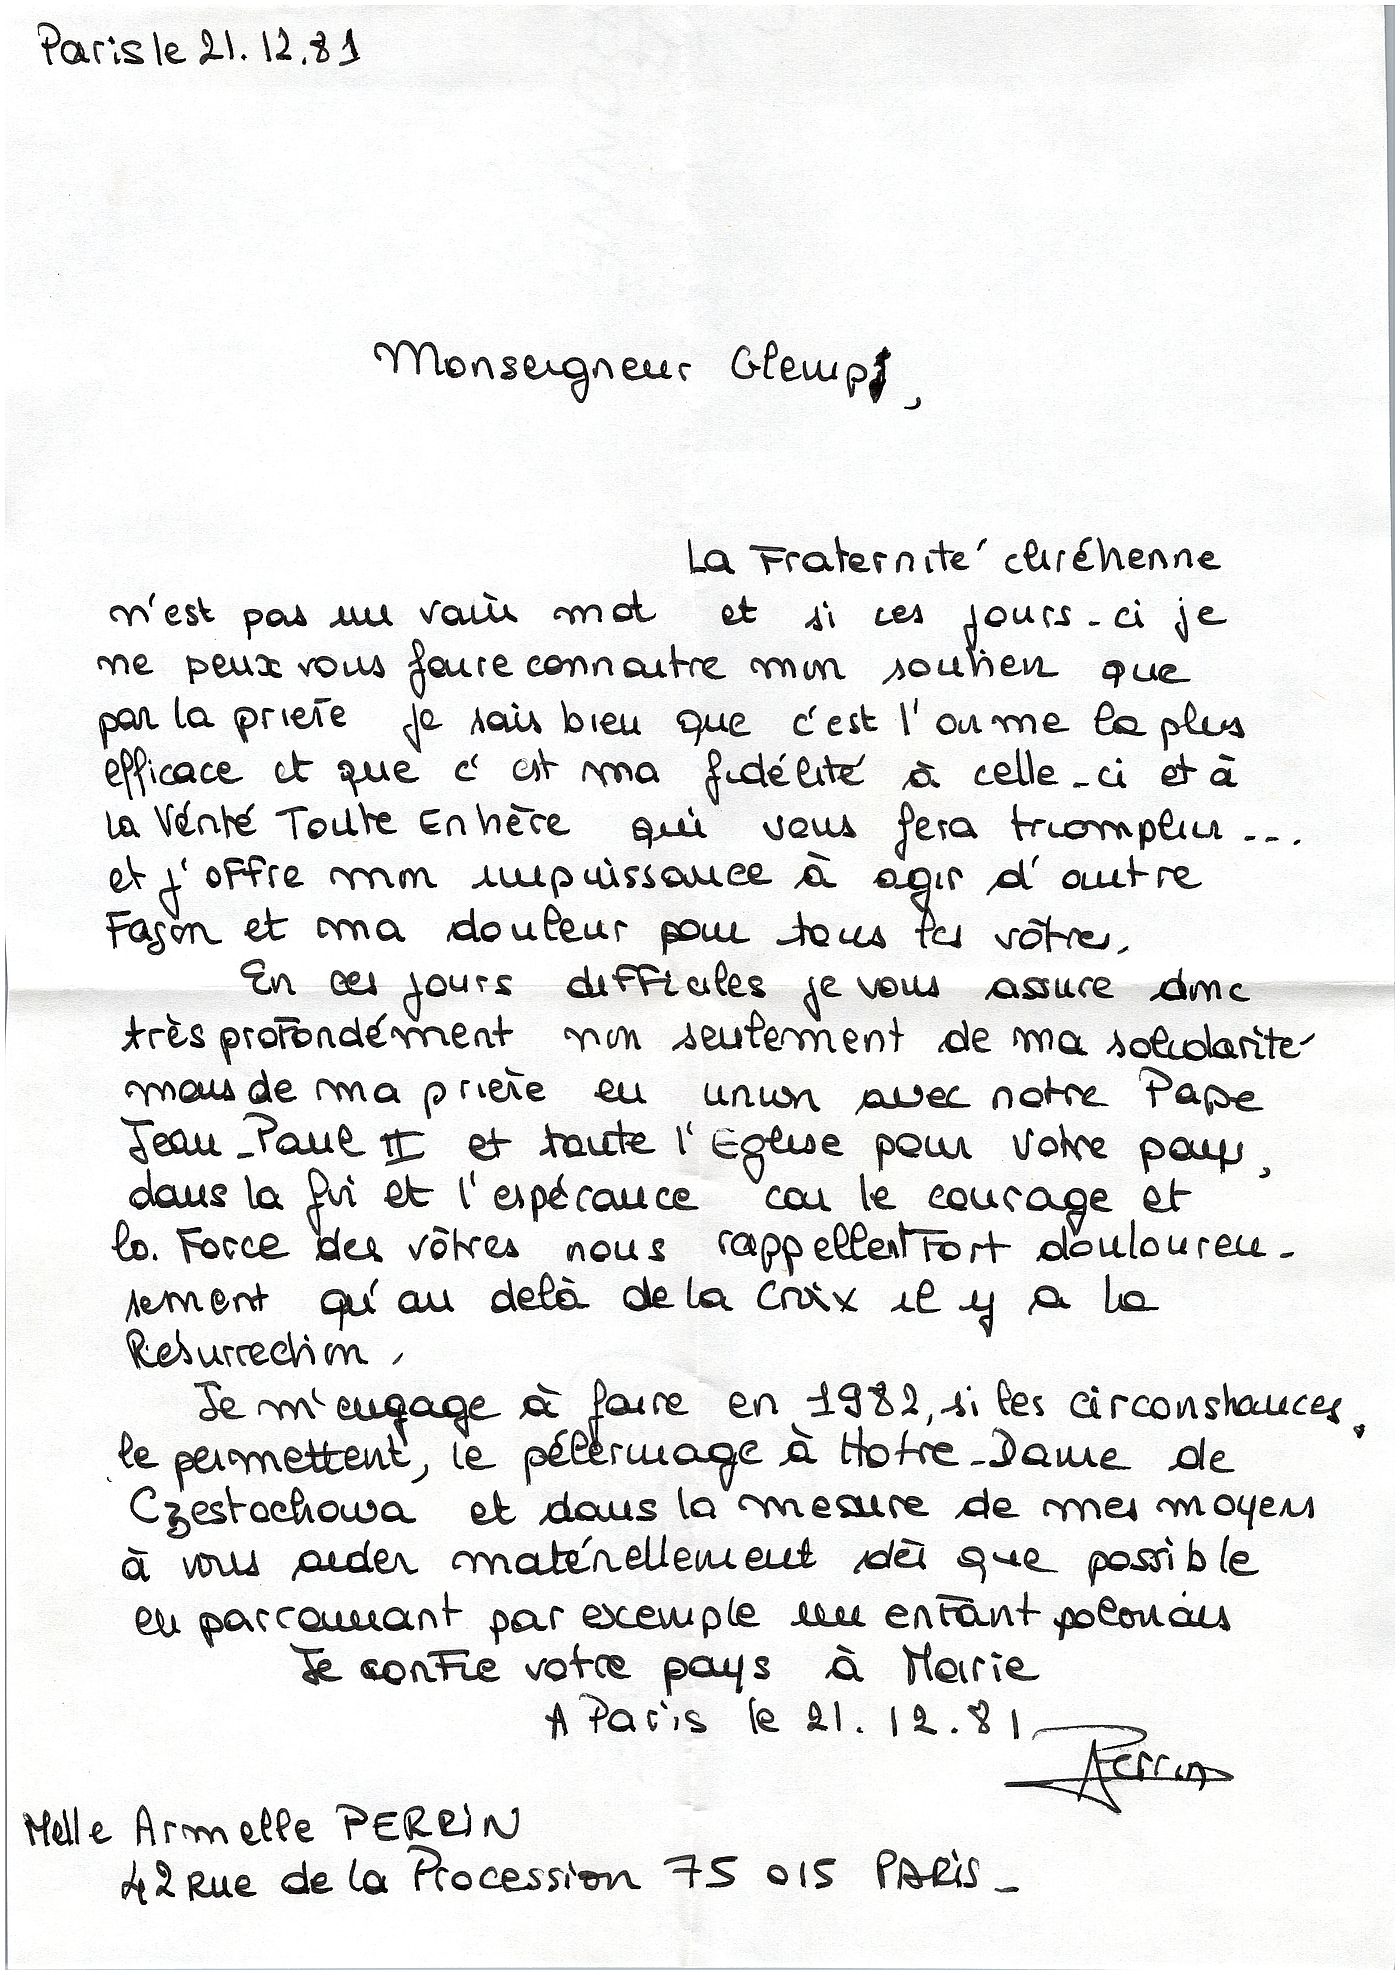 Paris le 21.12.81
Monseigneur Glemp,
La Fraternité chrétienne
n'est pas un vain mot et si ces jours-ci je
ne peux vous faire connaitre mon soutien que
par la prière je sais bien que c'est l'arme la plus
efficace et que c'est ma fidélité à celle-ci et à
la Vérité Toute Entière qui vous fera triompher...
et j'offre mon impuissance à agir d'autre
Façon et ma douleur pour tous les vôtres.
En ces jours difficiles je vous assure donc
très profondément non seulement de ma solidarité
mais de ma prière en union avec notre Pape
Jean-Paul II et toute l'Eglise pour votre pays,
dans la foi et l'espérance car le courage et
la Force des vôtres nous rappellent Fort douloureu-
sement qu'au delà de la Croix il y a la
Résurrection.
Je m'engage à faire en 1982, si les circonstances
le permettent, le pélerinage à Notre-Dame de
Czestochowa et dans la mesure de mes moyens
à vous aider matériellement dès que possible
en parrainant par exemple un enfant polonais
Je confie votre pays à Marie
A Paris le 21.12.81
Perrin
Melle Armelle PERRIN
42 Rue de la Procession 75 015 PARIS_